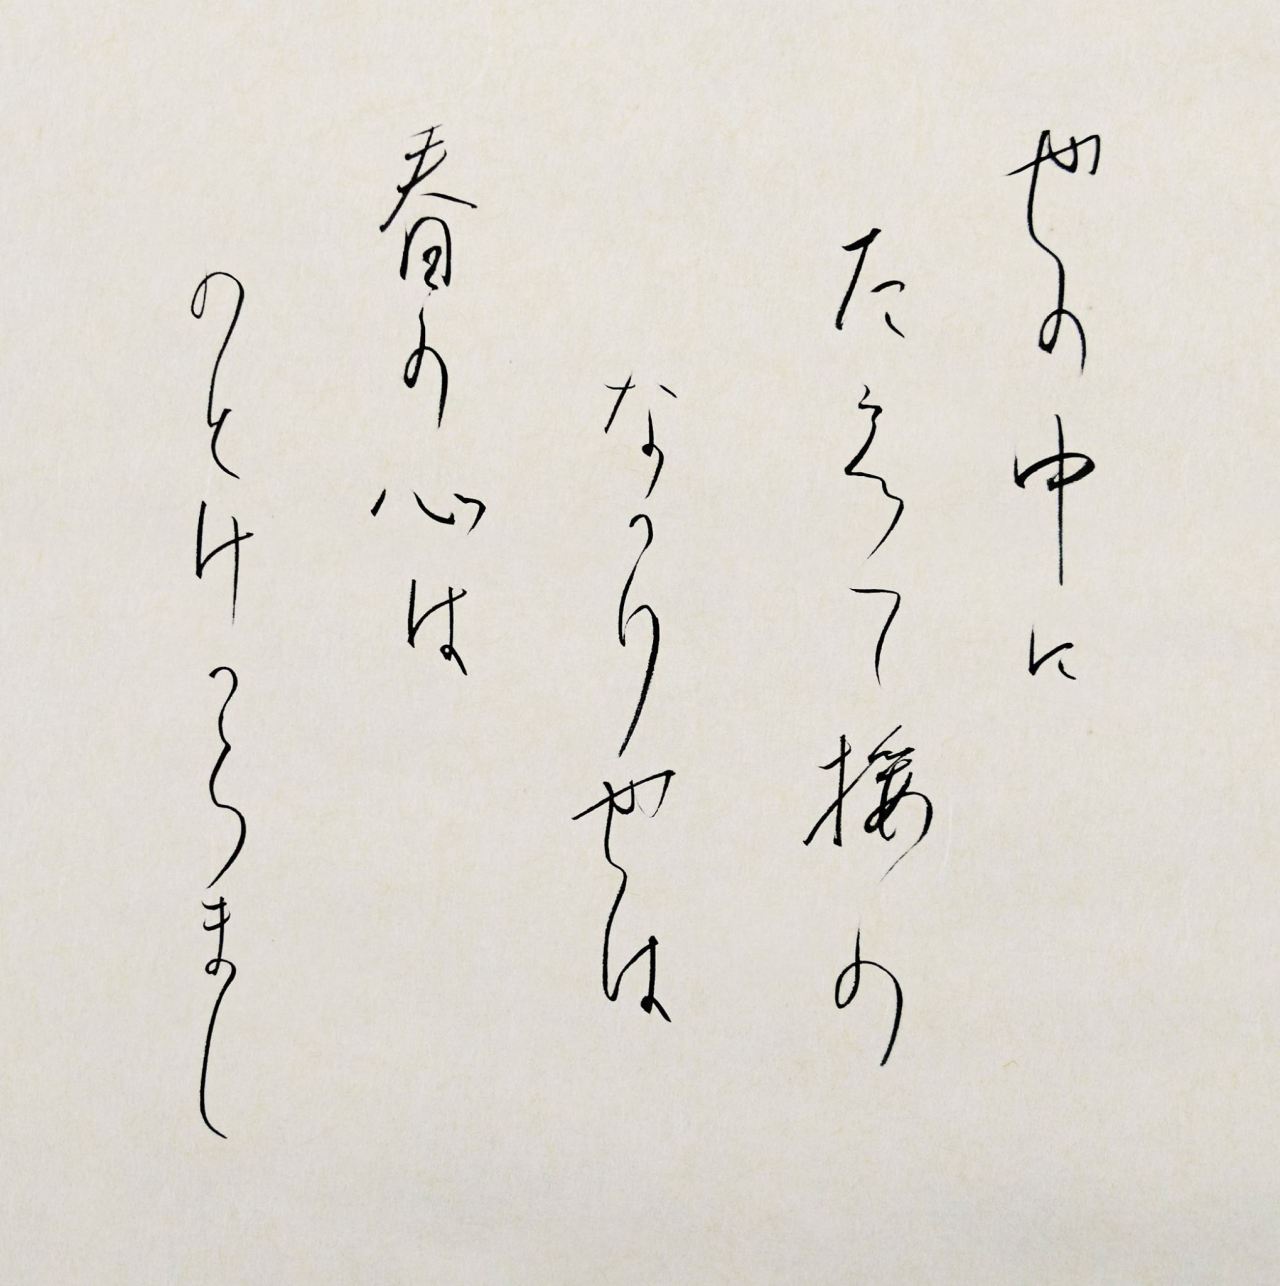 世の中に
たえて桜の
なかりせは
春の心は
のとけからまし